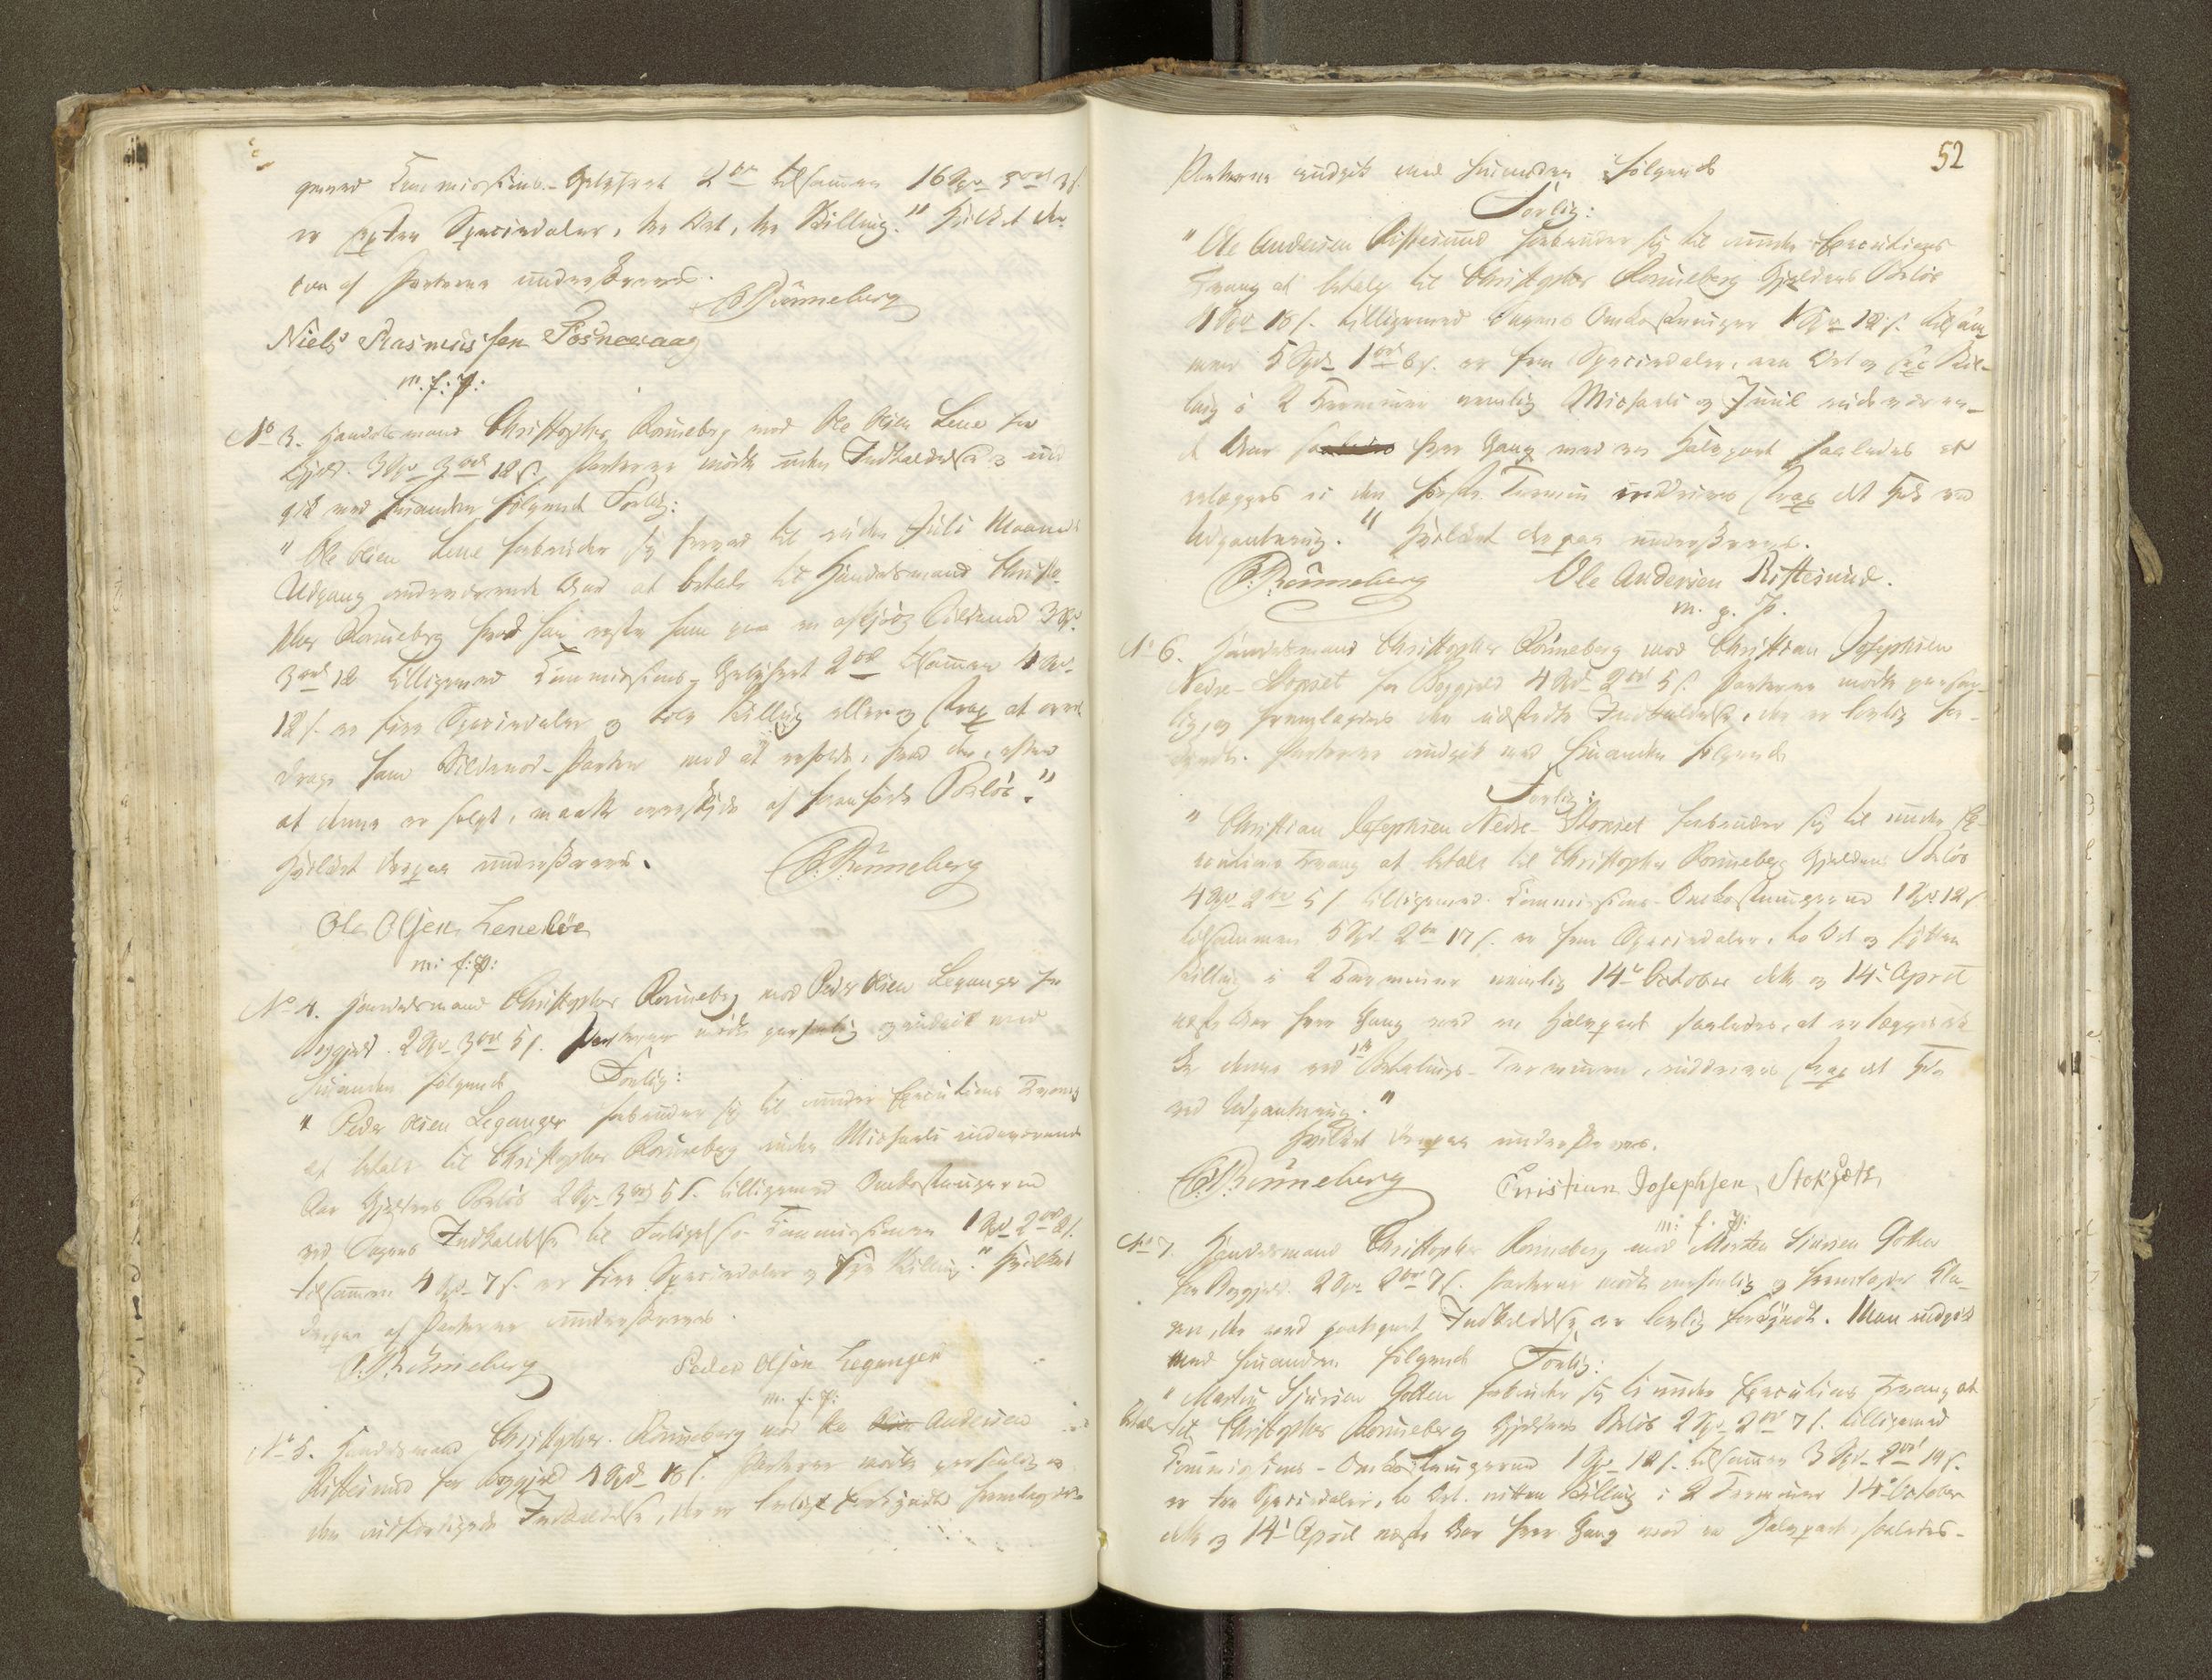 gemed Commissions-Gebyhret 2 ort tilsammen 16 Spd 3 ort 3 s.
er sexten Speciedaler, tre Ort, tre Skilling." Hvilket der
ved af Parterne underskreves.
C Rönneberg
Niels Rasmussen Fosnavaag
m. f. P:
No 3. Handelsmand Christopher Rönneberg mod Ole Olsen Lene for
Gjeld 3 Spd 3 ort 12 s. Parterne mödte uden Indkaldelse og ind
gik med hinanden fölgende Forlig:
" Ole Olsen Lene forbinder sig herved til inden Juli Maaneds
Udgang indeværende Aar at betale til Handelsmand Christo-
pher Rönneberg hvad han rester ham paa en afkjöbt Sildenod 3 Spd
3 ort 12 tilligemed Commissions-Gebyhret 2 ort tilsammen 4 Spd
12 s. er fire Speciedaler og tolv Skilling eller og strax at over
drage ham Sildenod-Parten mod at erholde, hvad der, efter
at denne er solgt, maatte overskyde af foranförte Belöb."
Hvilket derpaa underskreves.
C. Rönneberg
Ole Olsen Lenelöe
m: f: P:
No 4. Handelsmand Christopher Rönneberg mod Peder Olsen Leganger for
Boggjeld 2 Spd 3 ort 5 s. Parterne mödte personlig og indgik med
hinanden fölgende Forlig:
" Peder Olsen Leganger forbinder sig til under Executions Tvang
at betale til Christopher Rönneberg inden Michaeli indeværende
Aar Gjeldens Belöb 2 Spd 3 ort 5 s. tilligemed Omkostningerne
ved Sagens Indkaldelse til Forligelses Commissionen 1 Spd 2 ort 2 s.
tilsammen 4 Spd 7 s. er fire Speciedaler og syv Skilling." Hvilket
derpaa af Parterne underskreves.
C. Rönneberg Peder Olsen Leganger
m. f. P:
No 5. Handelsmand Christopher Rönneberg mod Ole Olsen Andersen
Riftesund for Boggjeld 4 Spd 18 s. Parterne mödte personlig og
den udfærdigede Indkaldelse, der er lovligt forkyndt fremlagdes
52
Parterne indgik med hinanden fölgende
Forlig:
" Ole Andersen Riftesund forbinder sig til under Executions
Tvang at betale til Christopher Rönneberg Gjeldens Belöb
4 Spd 18 s. tilligemed Sagens Omkostninger 1 Spd 12 s. tilsam
men 5 Spd 1 ort 6 s. er fem Speciedaler, een Ort og sex Skil-
ling i 2 Terminer nemlig Michaeli og Juul indeværen-
de Aar hver Gang med en Halvpart saaledes at
erlægges ei den förste Termin inddrives strax det Hele ved
Udpantning." Hvilket derpaa underskreves.
C. Rönneberg Ole Andersen Riftesund.
m. f. P.
No 6. Handelsmand Christopher Rönneberg mod Christian Josephsen
Nedre-Stokset for Boggjeld 4 Spd 2 ort 5 s. Parterne mödte person-
lig, og fremlagdes den udstedte Indkaldelse, der er lovlig for-
kyndt. Parterne indgik med hinanden fölgende
Forlig:
" Christian Josephsen Nedre-Stokset forbinder sig til under Ex-
ecutions Tvang at betale til Christopher Rönneberg Gjeldens Belöb
4 Spd 2 ort 5 s tilligemed Commissions-Omkostningerne 1 Spd 12 s
tilsammen 5 Spd 2 ort 17 s. er fem Speciedaler, to Ort og sytten
Skilling i 2 Terminer nemlig 14de October dette og 14de April
næste Aar hver Gang med en Halvpart saaledes, at erlægges ik
ke denne ved 1ste Betalings-Terminen, inddrives strax det Hele
ved Udpantning."
Hvilket derpaa underskreves.
C Rönneberg Cristian Josephsen Stoksæth
m: f. P:
No 7. Handelsmand Christopher Rönneberg mod Morten Sjursen Gotten
for Boggjeld 2 Spd 2 ort 7 s. Parterne mödte personlig og fremlagdes Kla-
gen, der med paategnet Indkaldelse er lovlig forkyndt. Man indgik
med hinanden fölgende Forlig:
" Morten Sjursen Gotten forbinder sig til under Executions Tvang at
betale til Christopher Rönneberg Gjeldens Belöb 2 Spd 2 ort 7 s. tilligemed
Commissions-Omkostningerne 1 Spd 12 s. tilsammen 3 Spd 2 ort 19 s.
er tre Speciedaler, to Ort nitten Skilling i 2 Terminer 14de October
dette og 14de April næste Aar hver Gang med en Halvpart, saaledes-